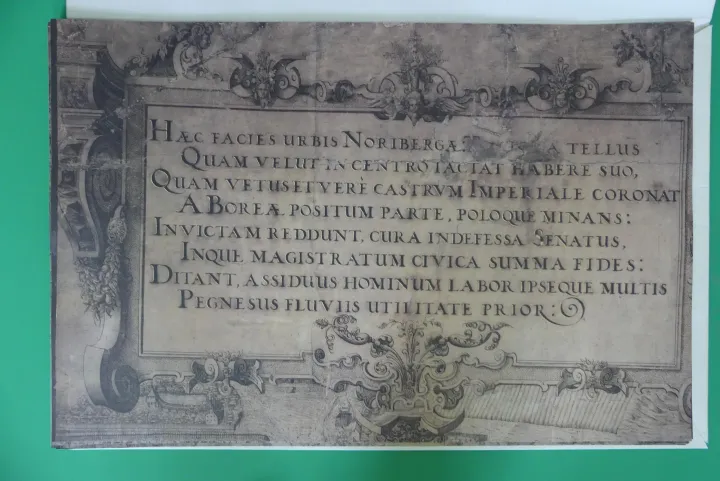 HÆC FACIES URBIS NORIBERGÆ: TELLUS
QUAM VELUT IN CENTRO IACTAT HABERE SUO,
QUAM VETUS ET VERÈ CASTRVM IMPERIALE CORONAT
A BOREÆ POSITUM PARTE, POLOQUE MINANS:
INVICTAM REDDUNT, CURA INDEFESSA SENATUS,
INQUE MAGISTRATUM CIVICA SUMMA FIDES:
DITANT, ASSIDUUS HOMINUM LABOR IPSEQUE MULTIS
PEGNESUS FLUVIIS UTILITATE PRIOR: